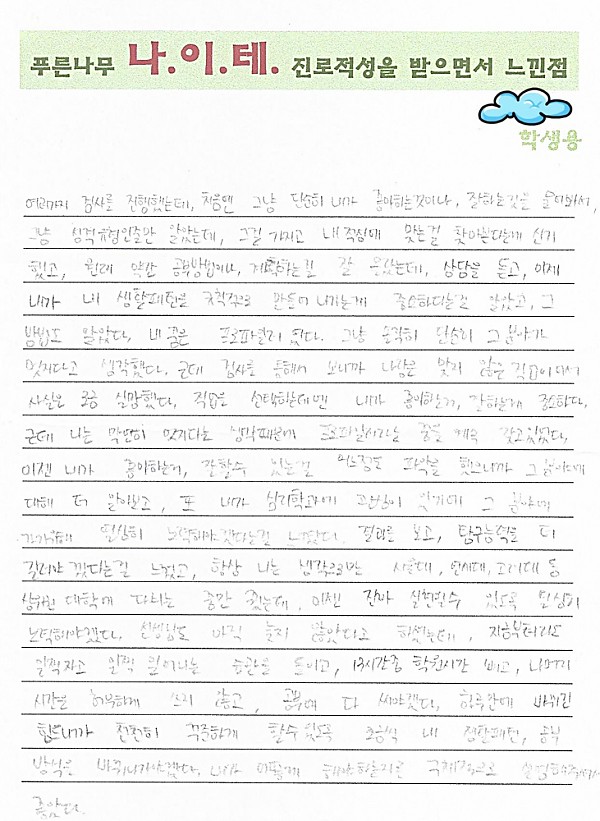 푸른나무 나.이.테. 진로적성을 받으면서 느낀점
학생용
여러가지 검사를 진행했는데, 처음엔 그냥 단순히 내가 좋아하는것이나, 잘하는것을
그냥 성격유형인줄만 알았는데, 그걸 가지고 내 적성에 맞는걸 찾아 신기
했고, 원래 약간 공부방법이나, 계획하는걸 잘 몰랐는데, 상담을 듣고, 이제
내가 내 생활패턴을 만들어 나가는게 중요하다는걸 알았고, 그
방법도 알았다. 내 꿈은 프로파일러 였다. 그냥 솔직히 단순히 그 분야가
멋지다고 생각했다. 근데 검사를 통해서 보니까 나랑은 맞지 않은 직업이라서
사실은 조금 실망했다. 직업을 선택하는데엔 내가 좋아하는거, 잘하는게 중요하다.
근데 나는 막연히 멋지다는 생각때문에 프로파일러라는 꿈을 계속 갖고있었다.
이젠 내가 좋아하는거, 잘할수 있는걸 어느정도 파악을 했으니까 그 분야에
대해 더 알아보고, 또 내가 심리학과에 관심이 있기에 그 분야에
열심히 노력해야겠다는걸 느꼈다. 결과를 보고, 탐구능력을 더
길러야 겠다는걸 느꼈고, 항상 나는 생각으로만 서울대, 연세대, 고려대 등
상위권 대학에 다니는 꿈만 꿨는데, 이젠 진짜 실현될수 있도록 열심히
노력해야겠다. 선생님도 아직 늦지 않았다고 하셨는데, 지금부터라도
일찍자고 일찍 일어나는 습관을 들이고, 13시간중 학원시간 빼고, 나머지
시간을 허욕하게 쓰지 않고, 공부에 다 써야겠다. 하루만에 바뀌긴
힘드니까 천천히 꾸준하게 할수있도록 조금씩 내 생활패턴, 공부
방식을 바꿔나가야겠다. 내가 어떻게 해야하는지를 구체적으로
좋았다.